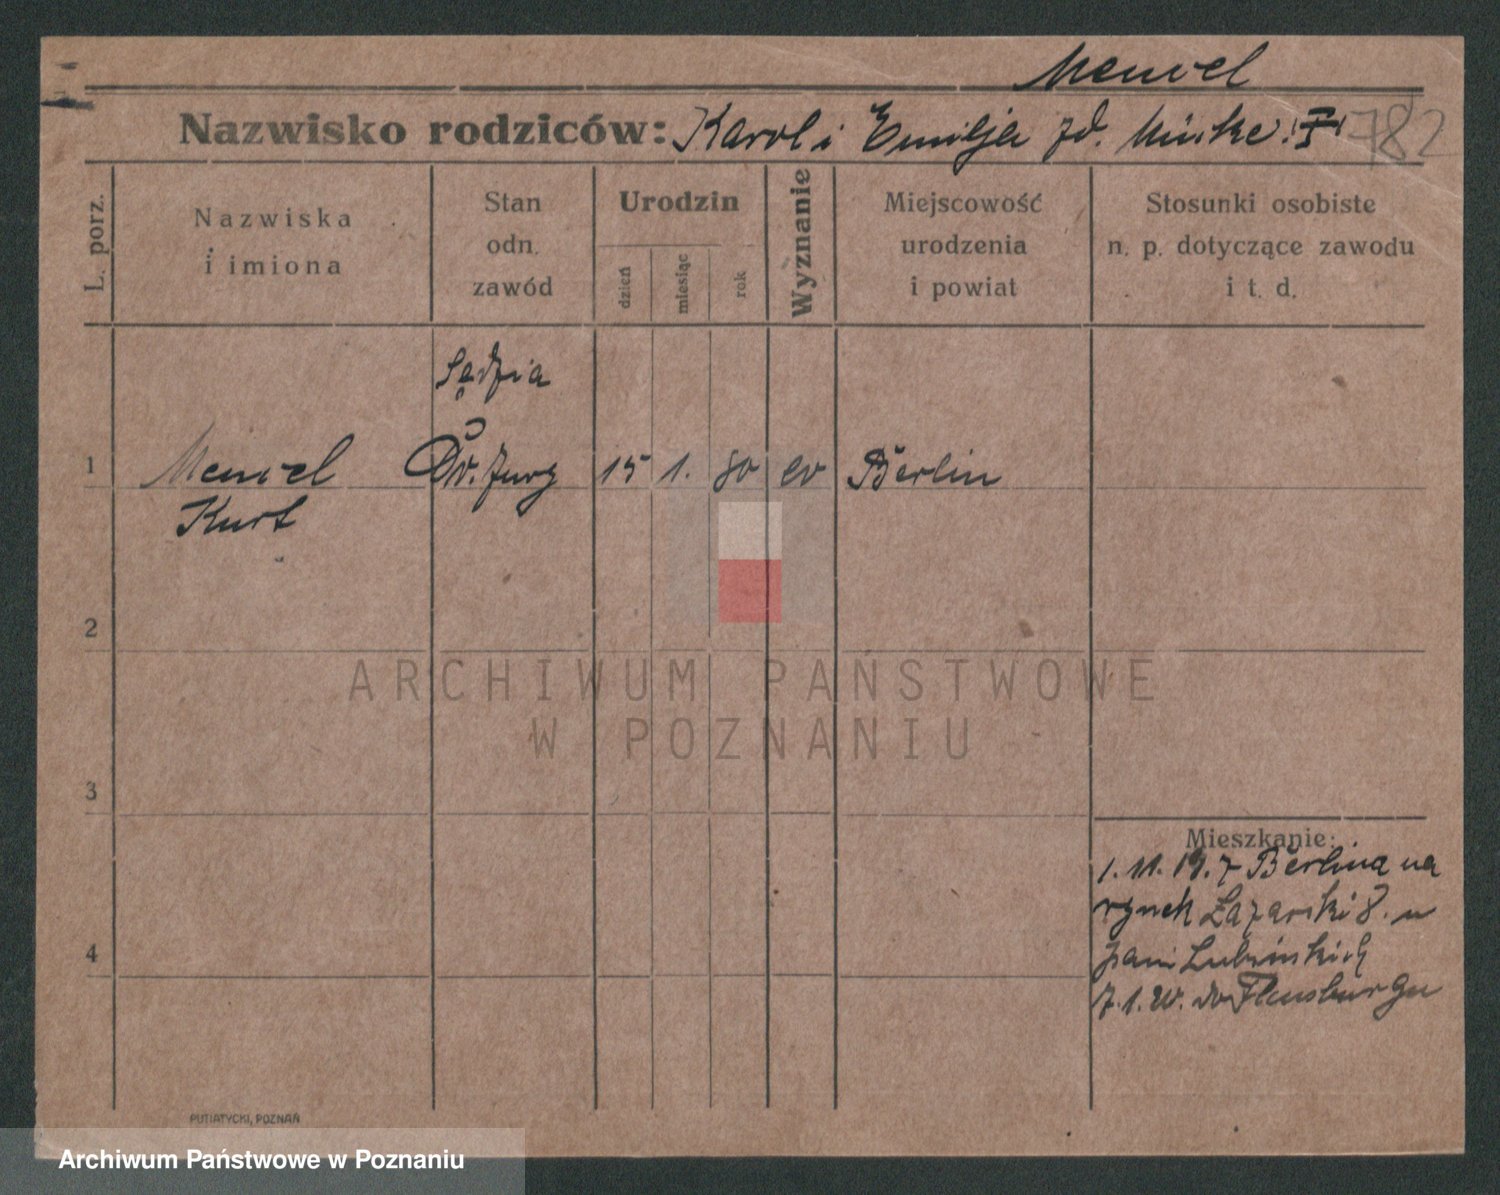 Menvel
Nazwisko rodziców: Karol i Emilja zd. 782
L. porz.
Nazwiska
i imiona
Stan
odn.
zawód
Urodzin
dzień
miesiąc
rok
Wyznanie
Miejscowość
urodzenia
i powiat
Stosunki osobiste
n. p. dotyczące zawodu
i t. d.
Sędzia
1 Menvel Dr. Jury 15 1. 80 ev Berlin
Kurt
2
3
4
Mieszkanie:
1. 11. 19. z Berlina na
rynek Łazarski 8. u
pani
7. 1. 20. do Flensburga
PUTIATYCKI, POZNAŃ
ARCHIWUM PAŃSTWOWE
W POZNANIU
Archiwum Państwowe w Poznaniu